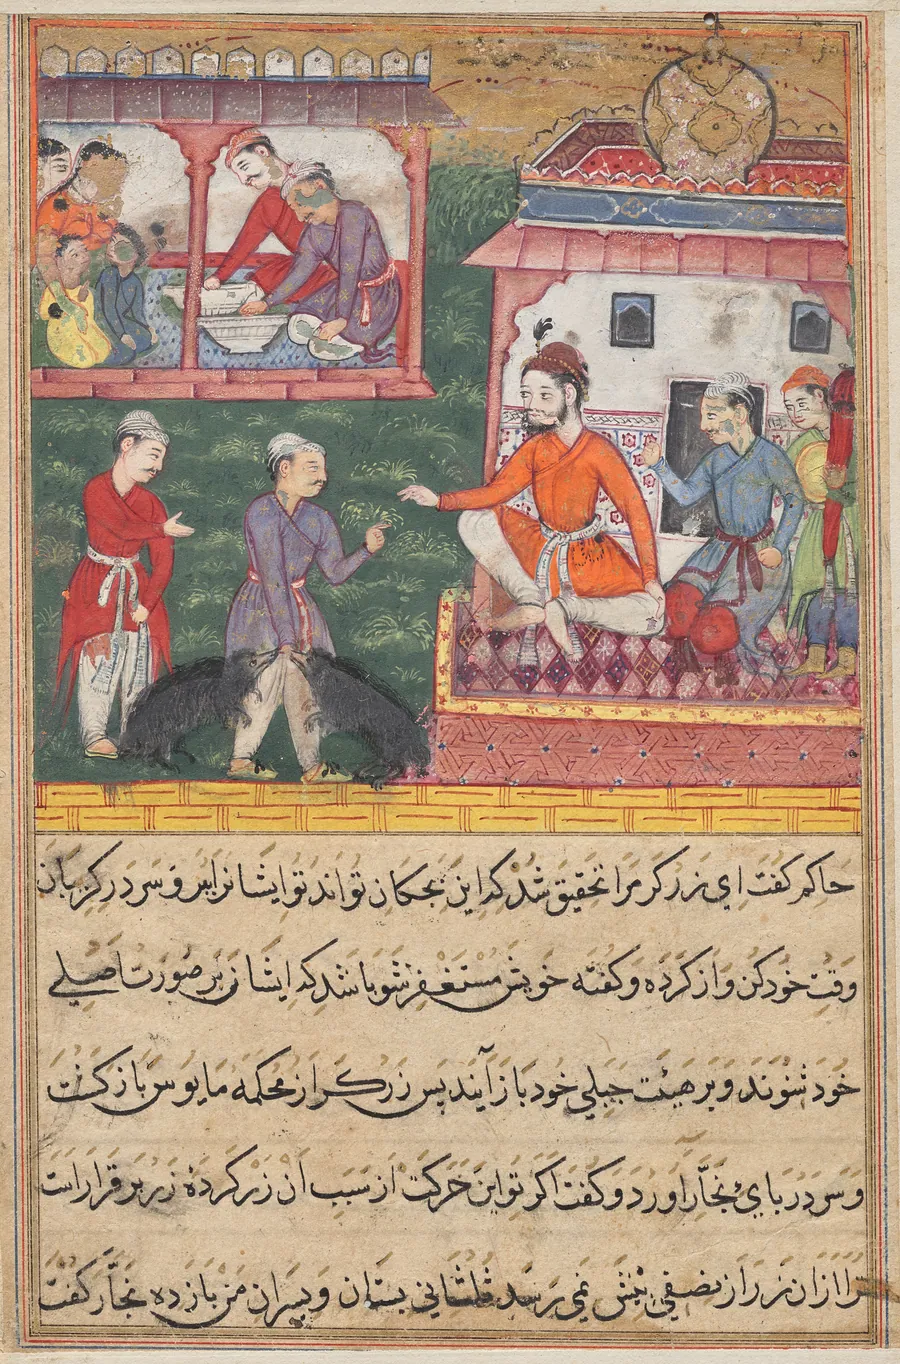 حاکم کفت ای زرکر مرا تحقیق شد که این بچکان تواند تو ایشانرا ببر و سر در کریبان
وقت خود کن و از کرده و کفته خویش مستغفر شو باشد که ایشان بر صورت اصلی
خود شوند و بر هیئت جبلی خود باز آیند پس زرکر از محکمه مایوس باز کشت
و سر در پای نجار اورد و کفت اکر تو این حرکت از سبب ان زر کرده زر بر قرار است
ترا ازان زر از نصفی بیش نمی رسد ثلثانی بستان و پسران من باز ده نجار کفت